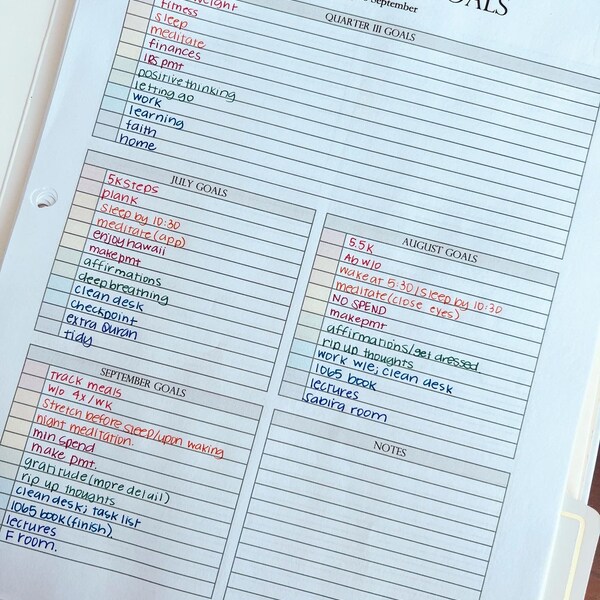 GOALS
September
QUARTER III GOALS
weight
fitness
sleep
meditate
finances
IRS pmt
positive thinking
letting go
work
learning
faith
home
JULY GOALS
5K steps
plank
sleep by 10:30
meditate (app)
enjoy hawaii
make pmt
affirmations
deep breathing
clean desk
checkpoint
extra Quran
tidy
AUGUST GOALS
5.5K
Ab w/o
wake at 5:30/sleep by 10:30
meditate (close eyes)
NO SPEND
make pmt
affirmations/get dressed
rip up thoughts
work w/e; clean desk
1065 book
lectures
Sabira room
SEPTEMBER GOALS
Track meals
w/o 4x/wk
stretch before sleep/upon waking
night meditation.
min spend
make pmt.
gratitude (more detail)
rip up thoughts
clean desk; task list
1065 book (finish)
lectures
F room.
NOTES